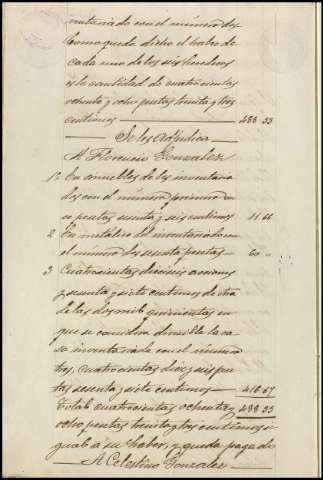 ventariado con el número dos
Como queda dicho el haber de
cada uno de los seis herederos
es la cantidad de cuatrocientas
ochenta y ocho pesetas treinta y tres
centimos 488 33
Se les adjudica
A Florencio Gonzalez
1º En muebles de los inventaria
dos con el número primero on
ce pesetas sesenta y seis centimos 11 66
2 En metalico del inventariado con
el número dos sesenta pesetas 60 "
3 Cuatrocientas dieciseis acciones
y sesenta y siete centimos de otra
de las dos mil quinientas en
que se considera divisible la ca
sa inventariada con el número
tres, cuatrocientas diez y seis pese
tas sesenta y siete centimos 416 67
Total cuatrocientas ochenta y 488 33
ocho pesetas treinta y tres centimos i
gual a su haber, y queda pagado
A Celestino Gonzalez